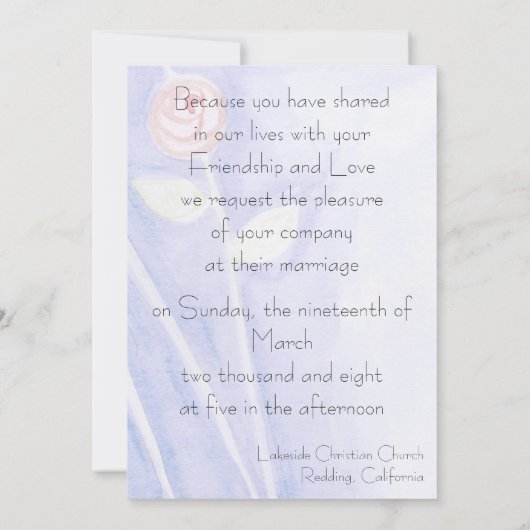 Because you have shared
in our lives with your
Friendship and Love
we request the pleasure
of your company
at their marriage
on Sunday, the nineteenth of
March
two thousand and eight
at five in the afternoon
Lakeside Christian Church
Redding, California